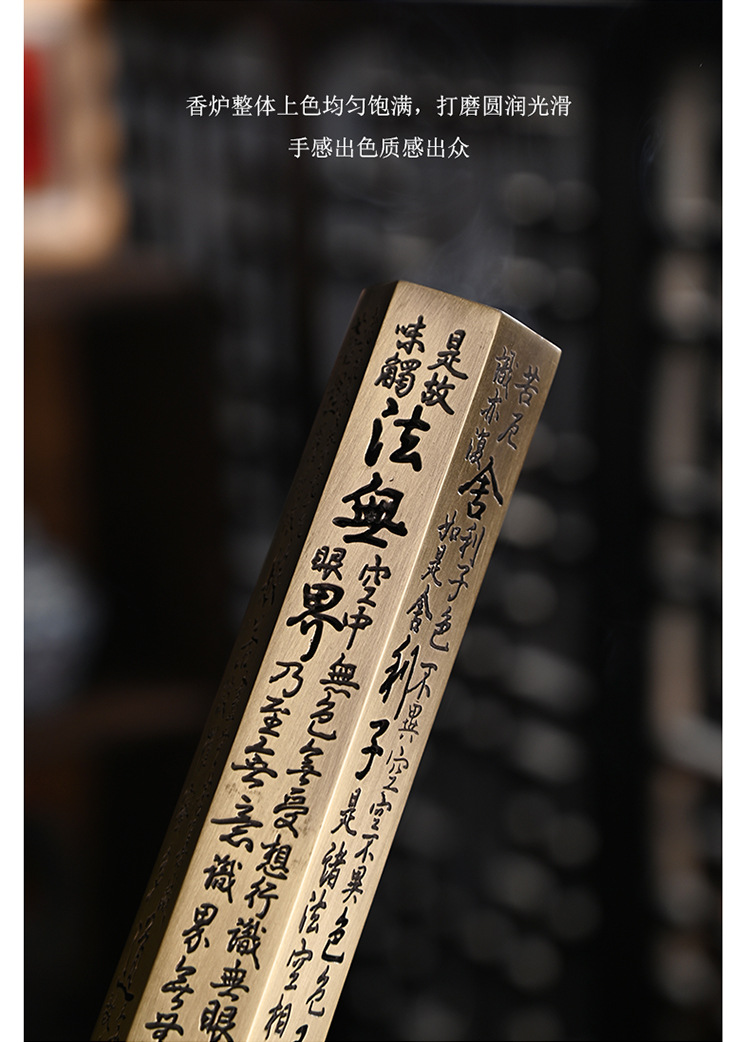 香炉整体上色均匀饱满，打磨圆润光滑
手感出色质感出众
苦厄舍利子色不異空空不異色色
識亦復如是舍利子是諸法空相
是故空中無色無受想行識無眼
味觸法無眼界乃至無意識界無無